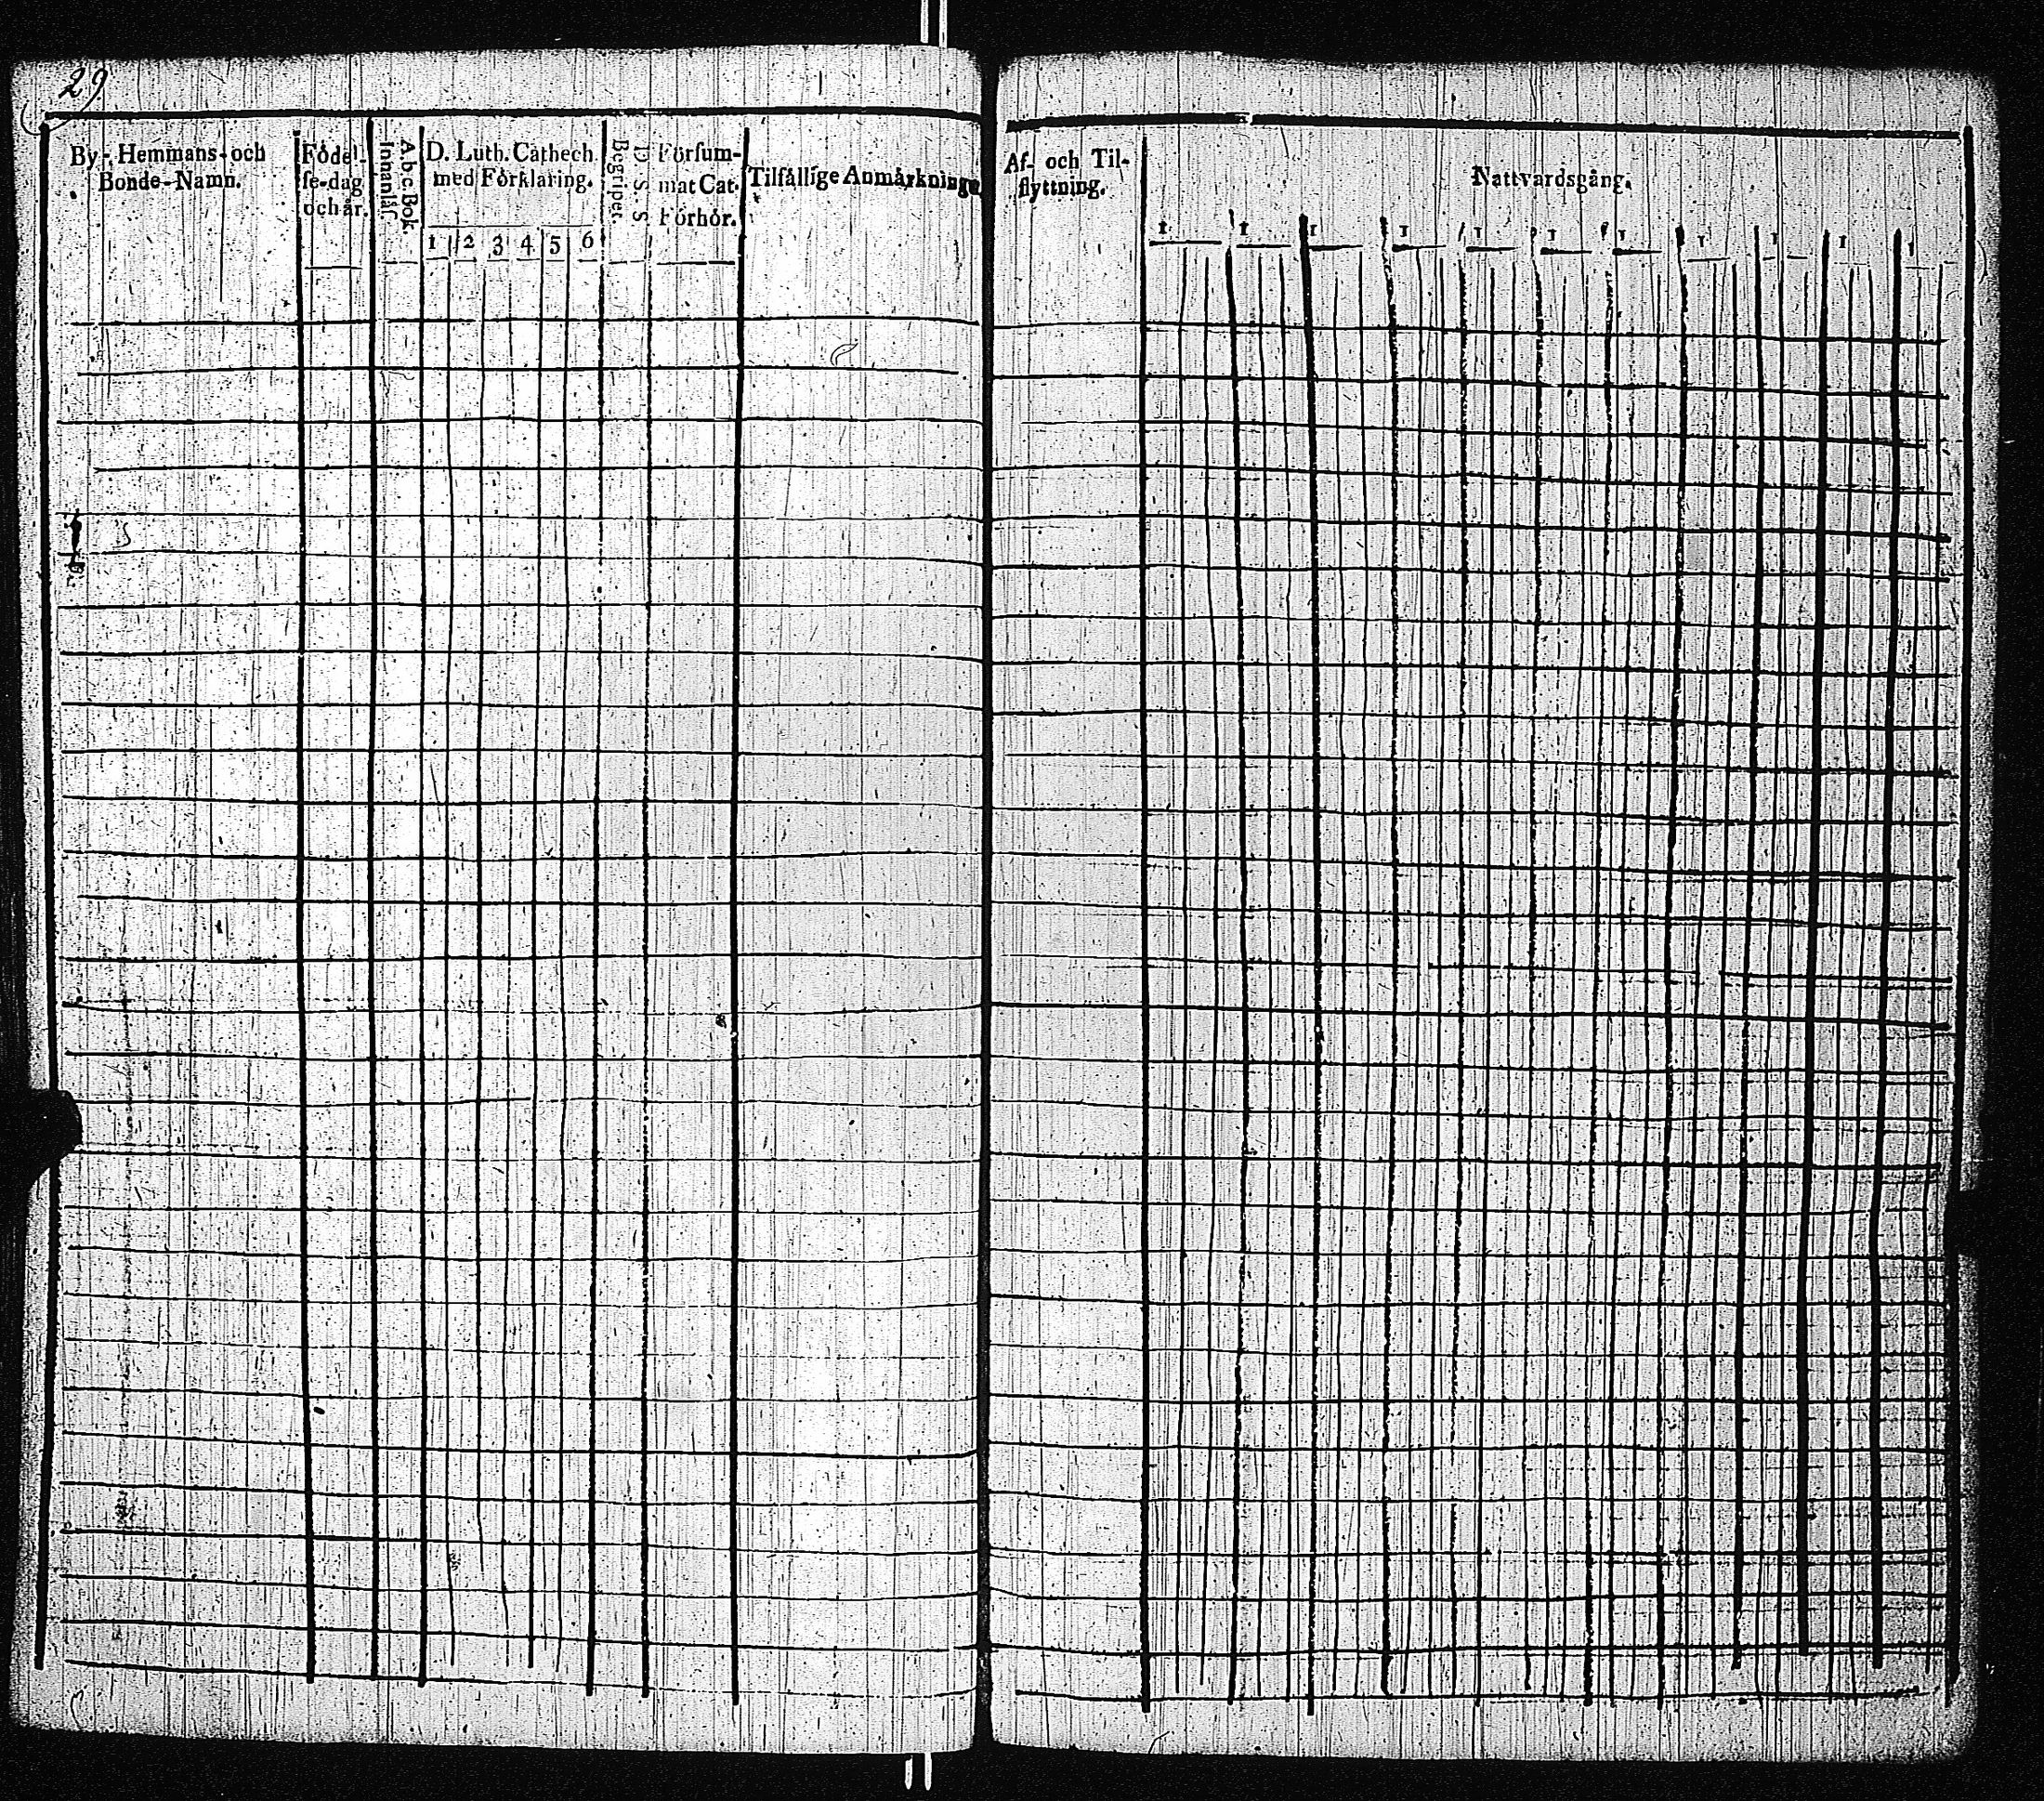 29
By-, Hemmans- och
Bonde-Namn.
Födel-
se-dag
och år.
A.b.c Bok
Innanläs.
D. Luth. Cathech.
med Förklaring.
1 2 3 4 5 6
D. S. S.
Begripet.
Försum-
mat Cat.
Förhör.
Tilfällige Anmärkningar
Af- och Til-
flyttning.
Nattvardsgång.
1 1 1 1 1 1 1 1 1 1 1